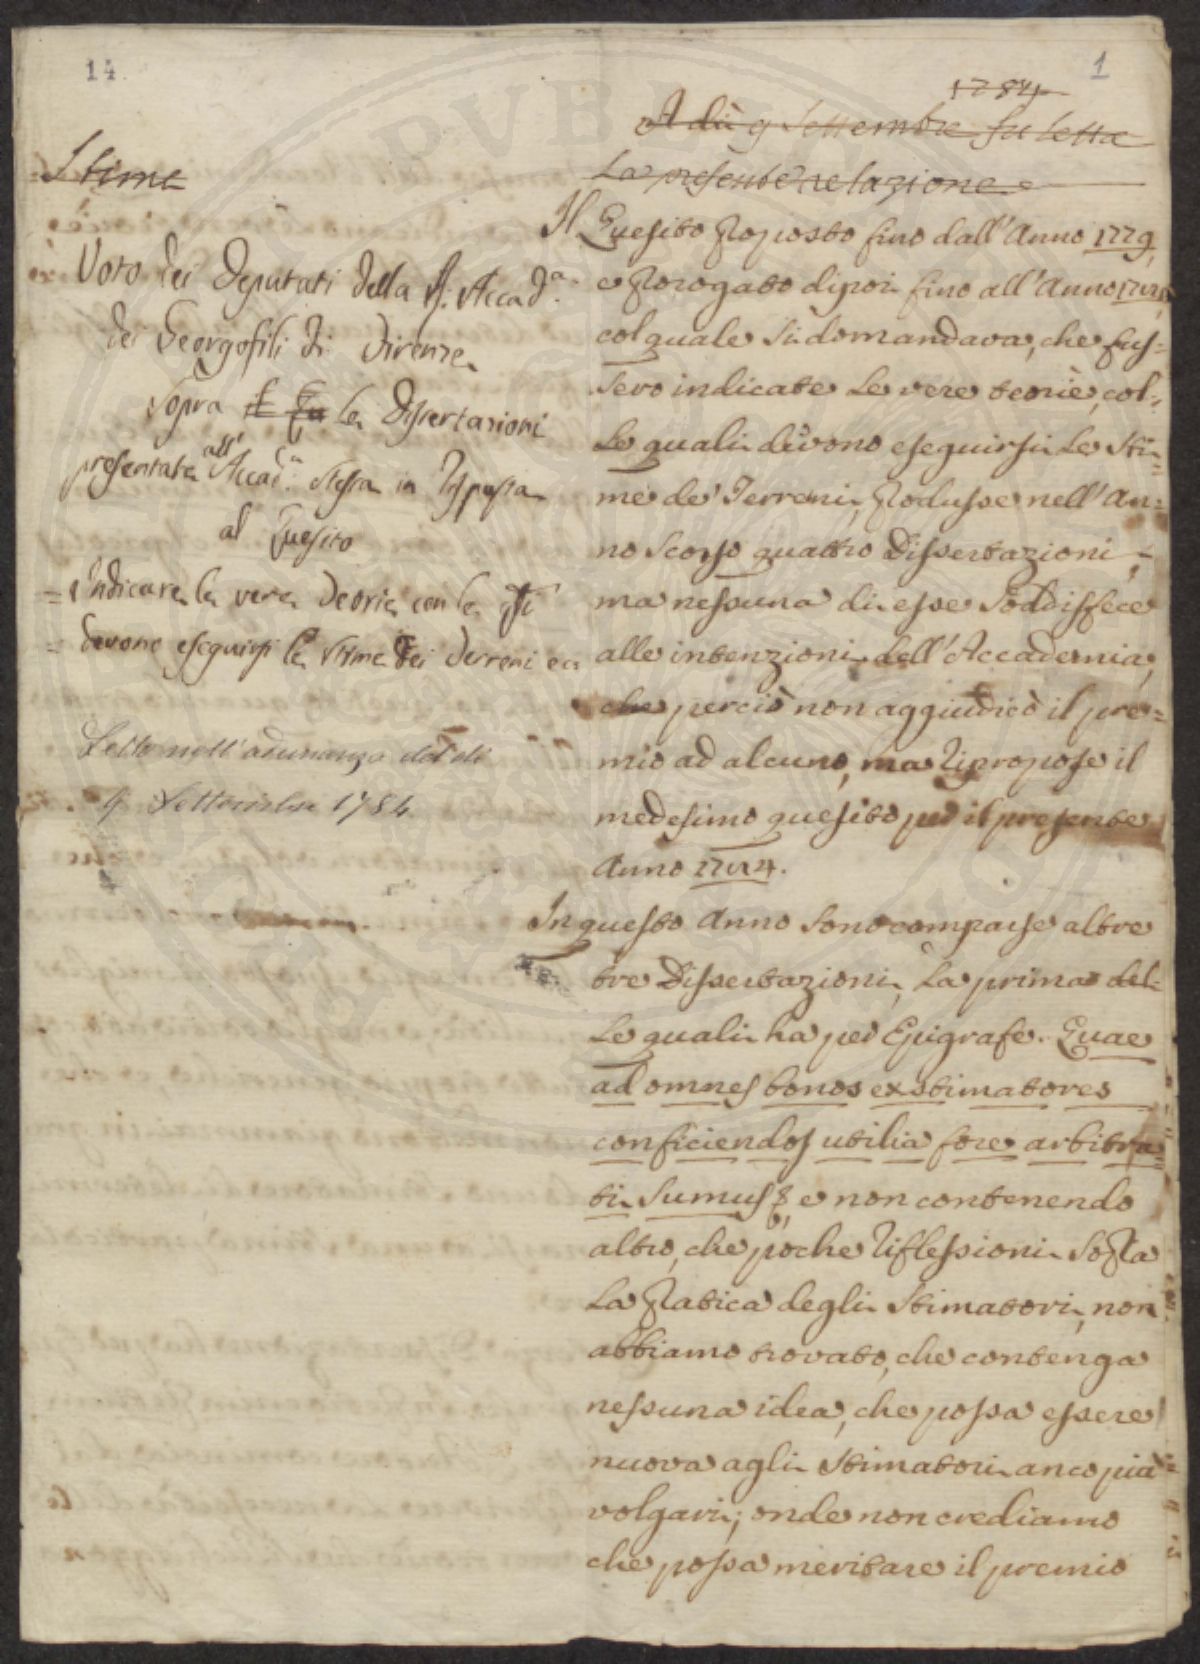 14
1
Stime
Voto dei Deputati della R. Accad.a
dei Georgofili di Firenze
sopra le Dissertazioni
presentate all' Accad.a stessa in Risposta
al Quesito
= Indicare le vere Teorie con le q.li
= devono eseguirsi le stime dei Terreni ec.
Letto nell'adunanza del dì
9. Settembre 1784
1784
A dì 9 Settembre fu letta
La presente relazione
Il Quesito Proposto fino dall'Anno 1779,
e Prorogato dipoi fino all'Anno
col quale si domandava, che fus=
sero indicate Le vere teorie, col=
Le quali devono eseguirsi Le Sti=
me de' Terreni, Produsse nell'An=
no scorso quattro Dissertazioni;
ma nessuna di esse Soddisfece
alle intenzioni dell'Accademia,
che perciò non aggiudicò il pre=
mio ad alcuno, ma Ripropose il
medesimo quesito per il presente
Anno 1784.
In questo Anno Sono comparse altre
tre Dissertazioni, La prima del=
Le quali ha per Epigrafe. Quae
ad omnes bonos existimatores
conficiendos utilia fore arbitra=
ti Sumus, e non contenendo
altro, che poche Riflessioni Sopra
La Pratica degli Stimatori, non
abbiamo trovato, che contenga
nessuna idea, che possa essere
nuova agli Stimatori anco più
volgari; onde non crediamo
che possa meritare il premio